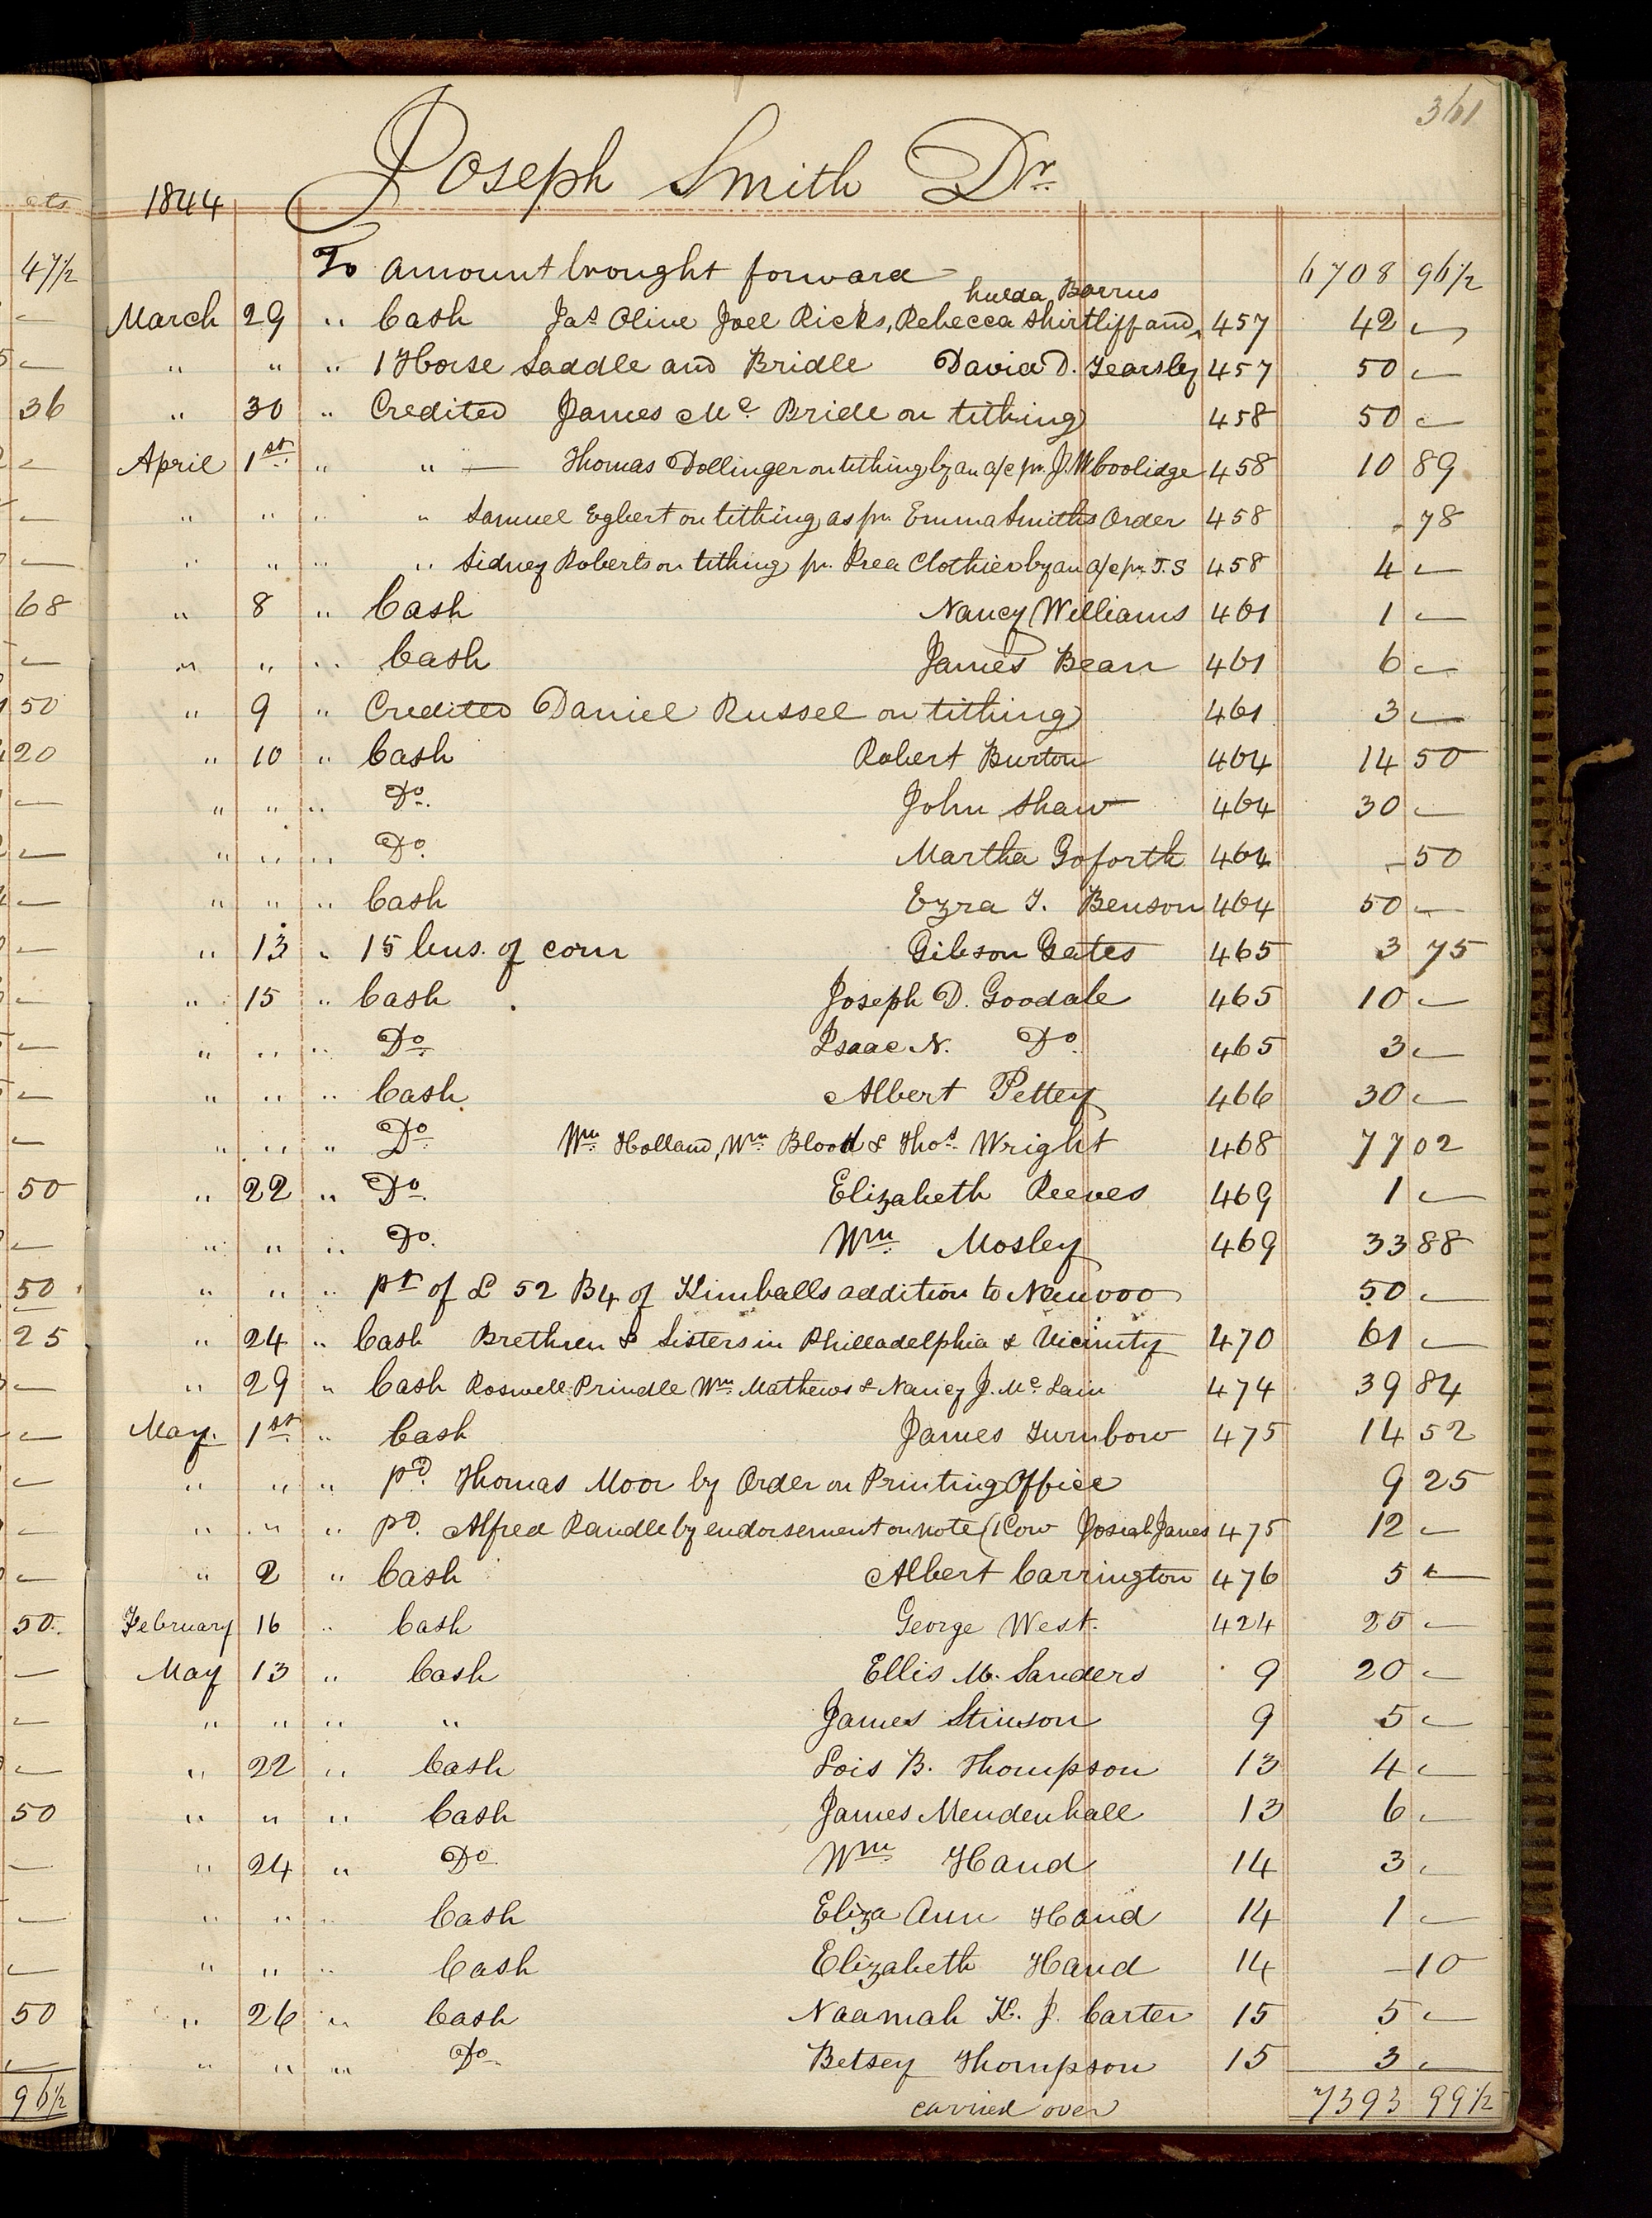 361
Joseph Smith Dr.
1844
To amount brought forward 6708 96 1/2
hulda Barrus
March 29 " Cash Jas Olive Joel Ricks, Rebecca Shirtliff and ^ 457 42 —
" " " 1 Horse Saddle and Bridle David D. Yearsley 457 50 —
" 30 " Credited James Mc Bride on tithing 458 50 —
April 1st " " — Thomas Dollinger on tithing by an a/c pr. J. W Coolidge 458 10 89
" " " " Samuel Egbert on tithing as pr Emma Smiths Order 458 - 78
" " " " Sidney Roberts on tithing pr. Prea Clothier by an a/c pr J.S 458 4 —
" 8 " Cash Nancy Williams 461 1 —
" " " Cash James Bean 461 6 —
" 9 " Credited Daniel Russel on tithing 461 3 —
" 10 " Cash Robert Burton 464 14 50
" " " Do. John Shaw 464 30 —
" " " Do. Martha Goforth 464 - 50
" " " Cash Ezra T. Benson 464 50 —
" 13 " 15 bus. of corn Gibson Gates 465 3 75
" 15 " Cash Joseph D. Goodale 465 10 —
" " " Do. Isaac N. Do. 465 3 —
" " " Cash Albert Pettey 466 30 —
" " " Do. Wm Holland, Wm Blood & Thos Wright 468 77 02
" 22 " Do. Elizabeth Reeves 469 1 —
" " " Do. Wm Mosley 469 33 88
" " " pt of L 52 B4 of Kimballs addition to Nauvoo 50 —
" 24 " Cash Brethren & Sisters in Philladelphia & Vicinity 470 61 —
" 29 " Cash Roswell Prindle Wm Mathews & Nancy J. Mc Lain 474 39 84
May. 1st " Cash James Turnbow 475 14 52
" " " pd. Thomas Moor by Order on Printing Office 9 25
" " " pd. Alfred Randle by endorsement on note (1 Cow Josiah James 475 12 —
" 2 " Cash Albert Carrington 476 5 —
February 16 " Cash George West. 424 25 —
May 13 " Cash Ellis M. Sanders 9 20 —
" " " " James Stinson 9 5 —
" 22 " Cash Lois B. Thompson 13 4 —
" " " Cash James Mendenhall 13 6 —
" 24 " Do Wm Hand 14 3 —
" " " Cash Eliza Ann Hand 14 1 —
" " " Cash Elizabeth Hand 14 — 10
" 26 " Cash Naamah K. J. Carter 15 5 —
" " " Do Betsey Thompson 15 3 —
carried over 7393 99 1/2